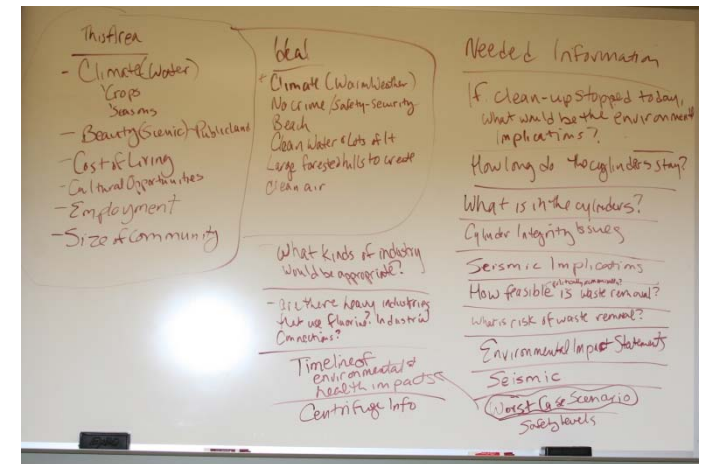 This Area
- Climate (Water)
Crops
Seasons
- Beauty (Scenic) - Publicland
- Cost of Living
- Cultural Opportunities
- Employment
- Size of Community
Ideal
Climate (Warm Weather)
No crime/Safety-security
Beach
Clean Water & Lots of It
Large forested hills to create
clean air
What kinds of industry
would be appropriate?
- are there heavy industries
that use fluorine? Industrial
Connections?
Timeline of
environmental &
health impacts
Centrifuge Info
Needed Information
If clean-up stopped today,
what would be the environment
implications?
How long do the cylinders stay?
What is in the cylinders?
Cylinder Integrity issues
Seismic Implications
How feasible is waste removal?
What is risk of waste removal?
Environmental Impact Statements
Seismic
Worst Case Scenario
Safety levels